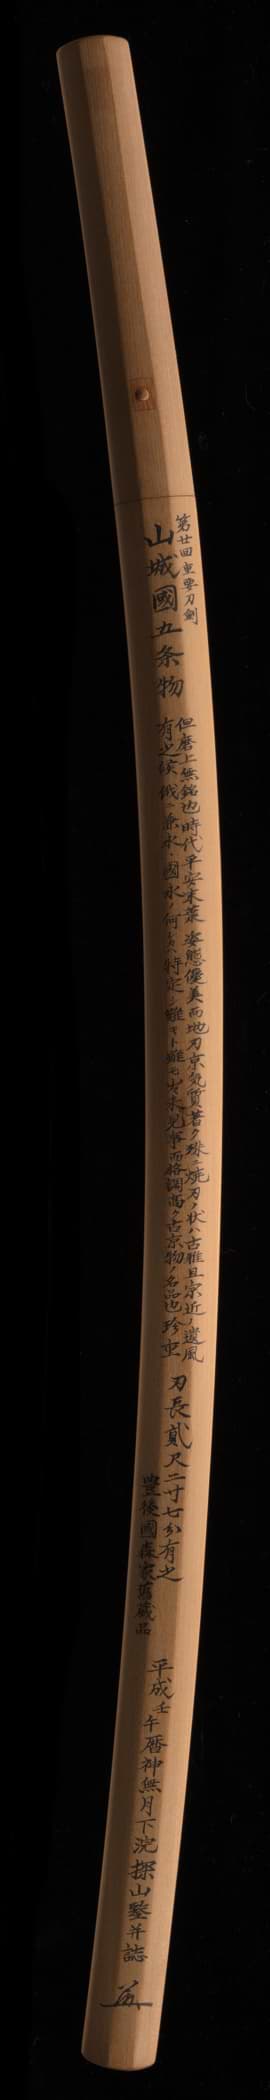 第廿回重要刀剣
山城國五条物
但磨上無銘也時代平安末葉姿態優美而地刃京気質著ク殊ニ焼刃ノ状ハ古雅且宗近ノ遺風
有之候俄ニ兼永、國永ノ何レカハ特定シ難キト雖モ出来見事而格調高ク古京物ノ名品也珍重
刃長貳尺二寸七分有之
豊後國森家舊蔵品
平成壬午暦神無月下浣探山鑒并誌